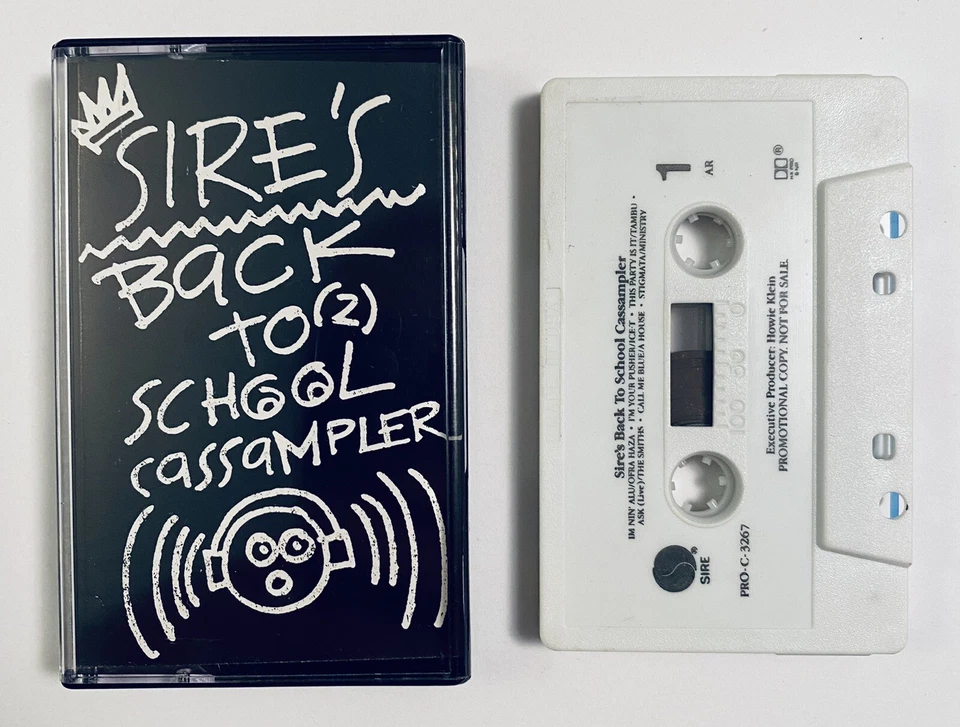 SIRE'S
BACK
TO (2)
SCHOOL
CASSAMPLER
1
AR
Sire's Back To School Cassampler
IM NIN' ALU/OFRA HAZA • I'M YOUR PUSHER/ICE-T • THIS PARTY IS IT/TAMBU •
ASK (Live)/THE SMITHS • CALL ME BLUE/A HOUSE • STIGMATA/MINISTRY
Executive Producer: Howie Klein
PROMOTIONAL COPY. NOT FOR SALE.
SIRE
®
PRO-C-3267
®
HX PRO
B NR